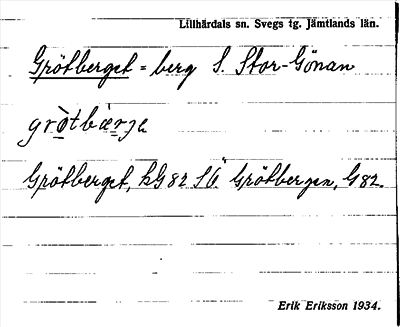 Lillhärdals sn. Svegs tg. Jämtlands län.
Grötberget = berg S. Stor-Gönan
gròtbærje
Grötberget, hG82 SV. Grötbergen, G82.
Erik Eriksson 1934.